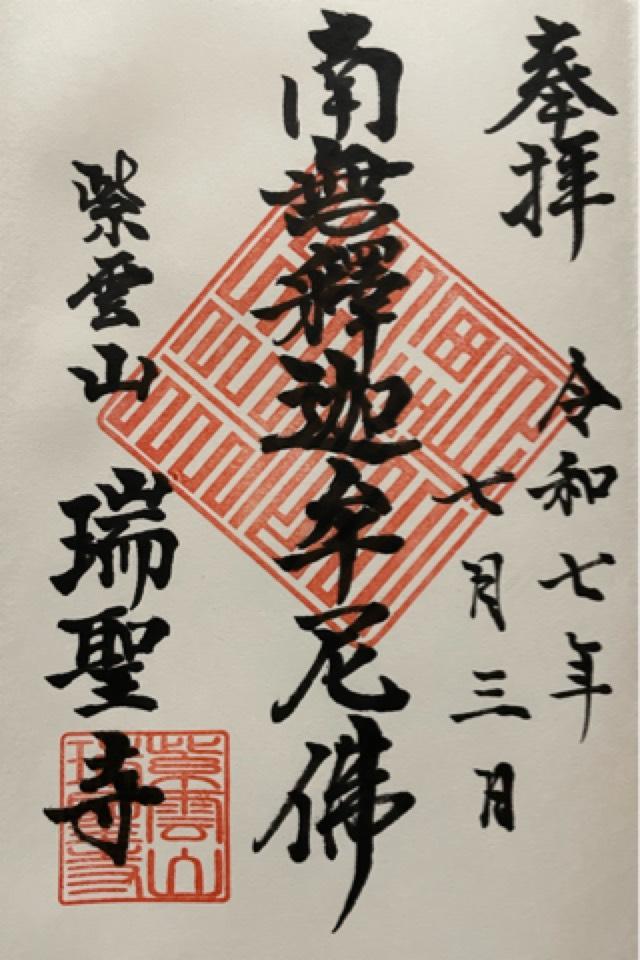 奉拝
令和七年
七月三日
南無釋迦牟尼佛
紫雲山
瑞聖寺
紫雲山
瑞聖寺